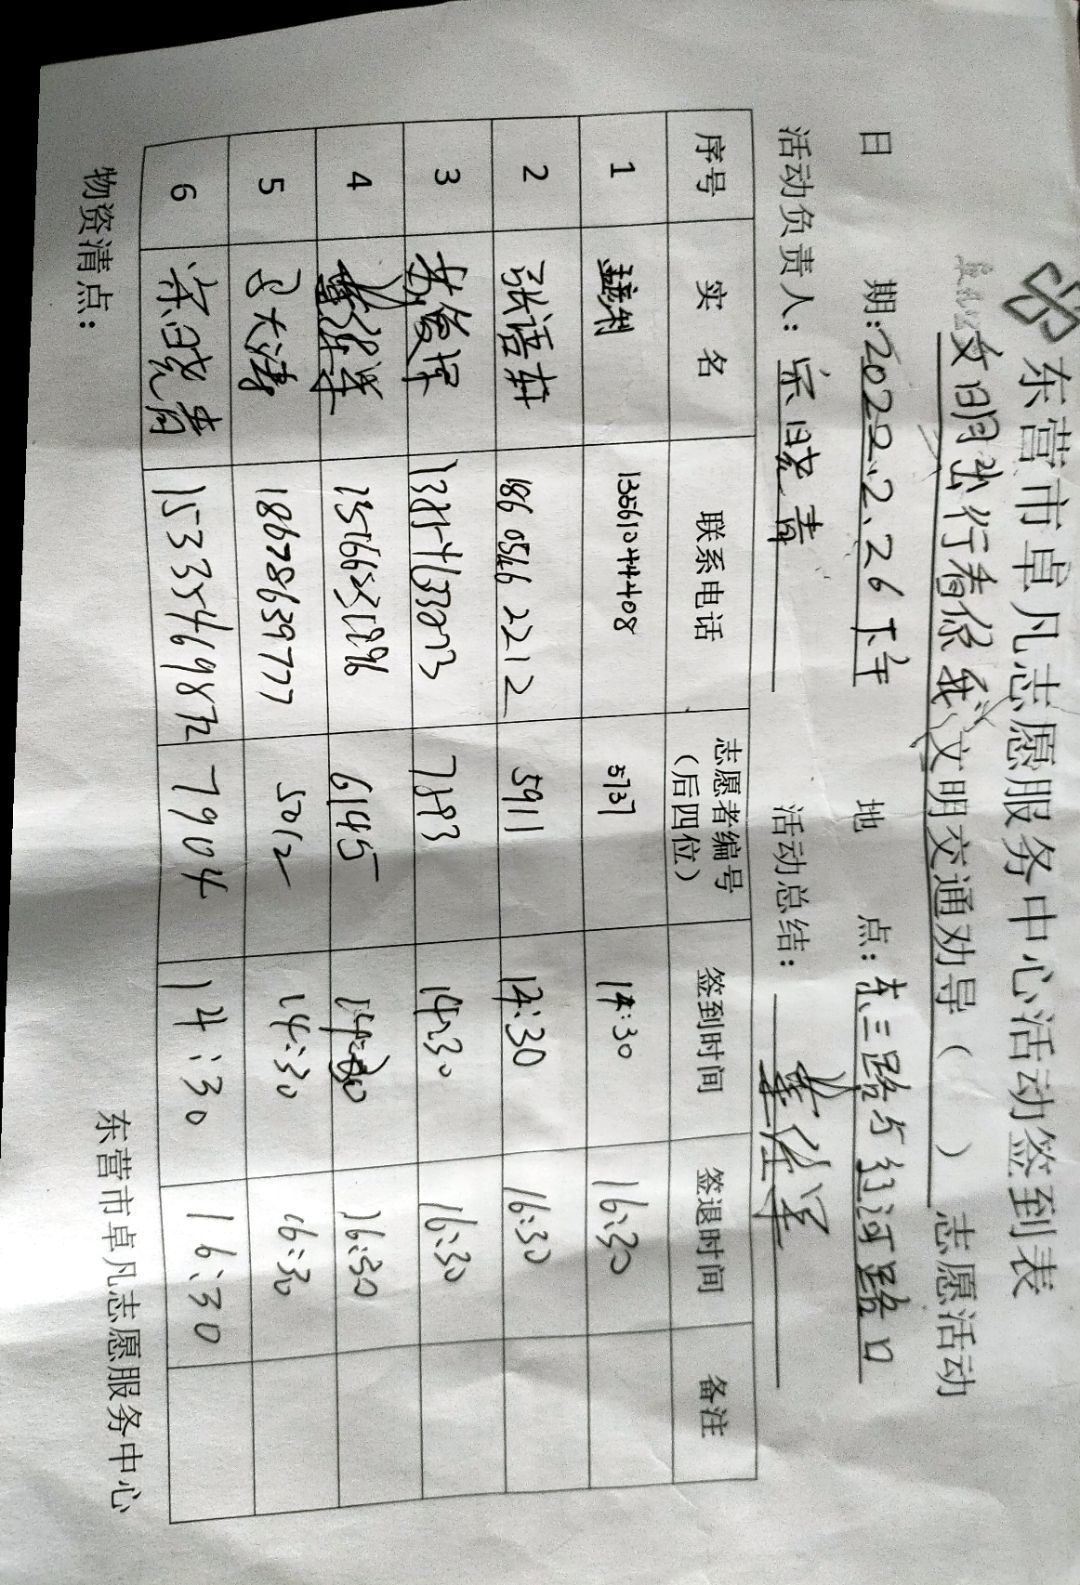 东营市卓凡志愿服务中心活动签到表
文明出行看你我、文明交通劝导（ ）志愿活动
日 期：2022.2.26下午 地 点：东三路与红河路口
活动负责人：宗晓青 活动总结：
序号 实 名 联系电话 志愿者编号（后四位） 签到时间 签退时间 备注
1 13561044408 5737 14:30 16:30
2 张语轩 186 0546 2212 5911 14:30 16:30
3 14:30 16:30
4 6145 16:30
5 18678639777 5012 14:30 16:30
6 宗晓青 7904 14:30 16:30
物资清点：
东营市卓凡志愿服务中心